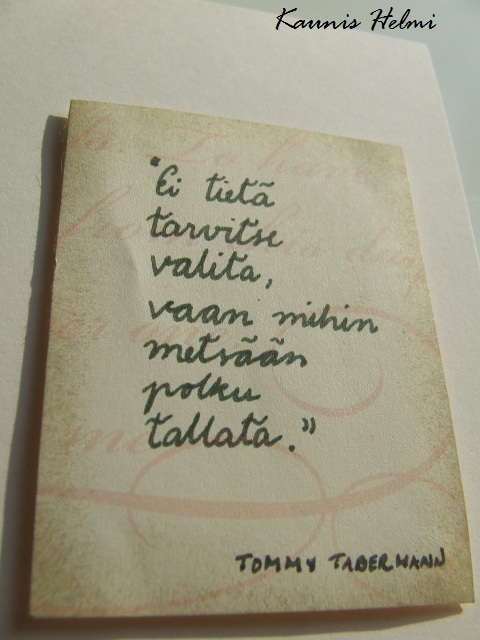 Kaunis Helmi
"Ei tietä
tarvitse
valita,
vaan mihin
metsään
polku
tallata."
TOMMY TABERMANN